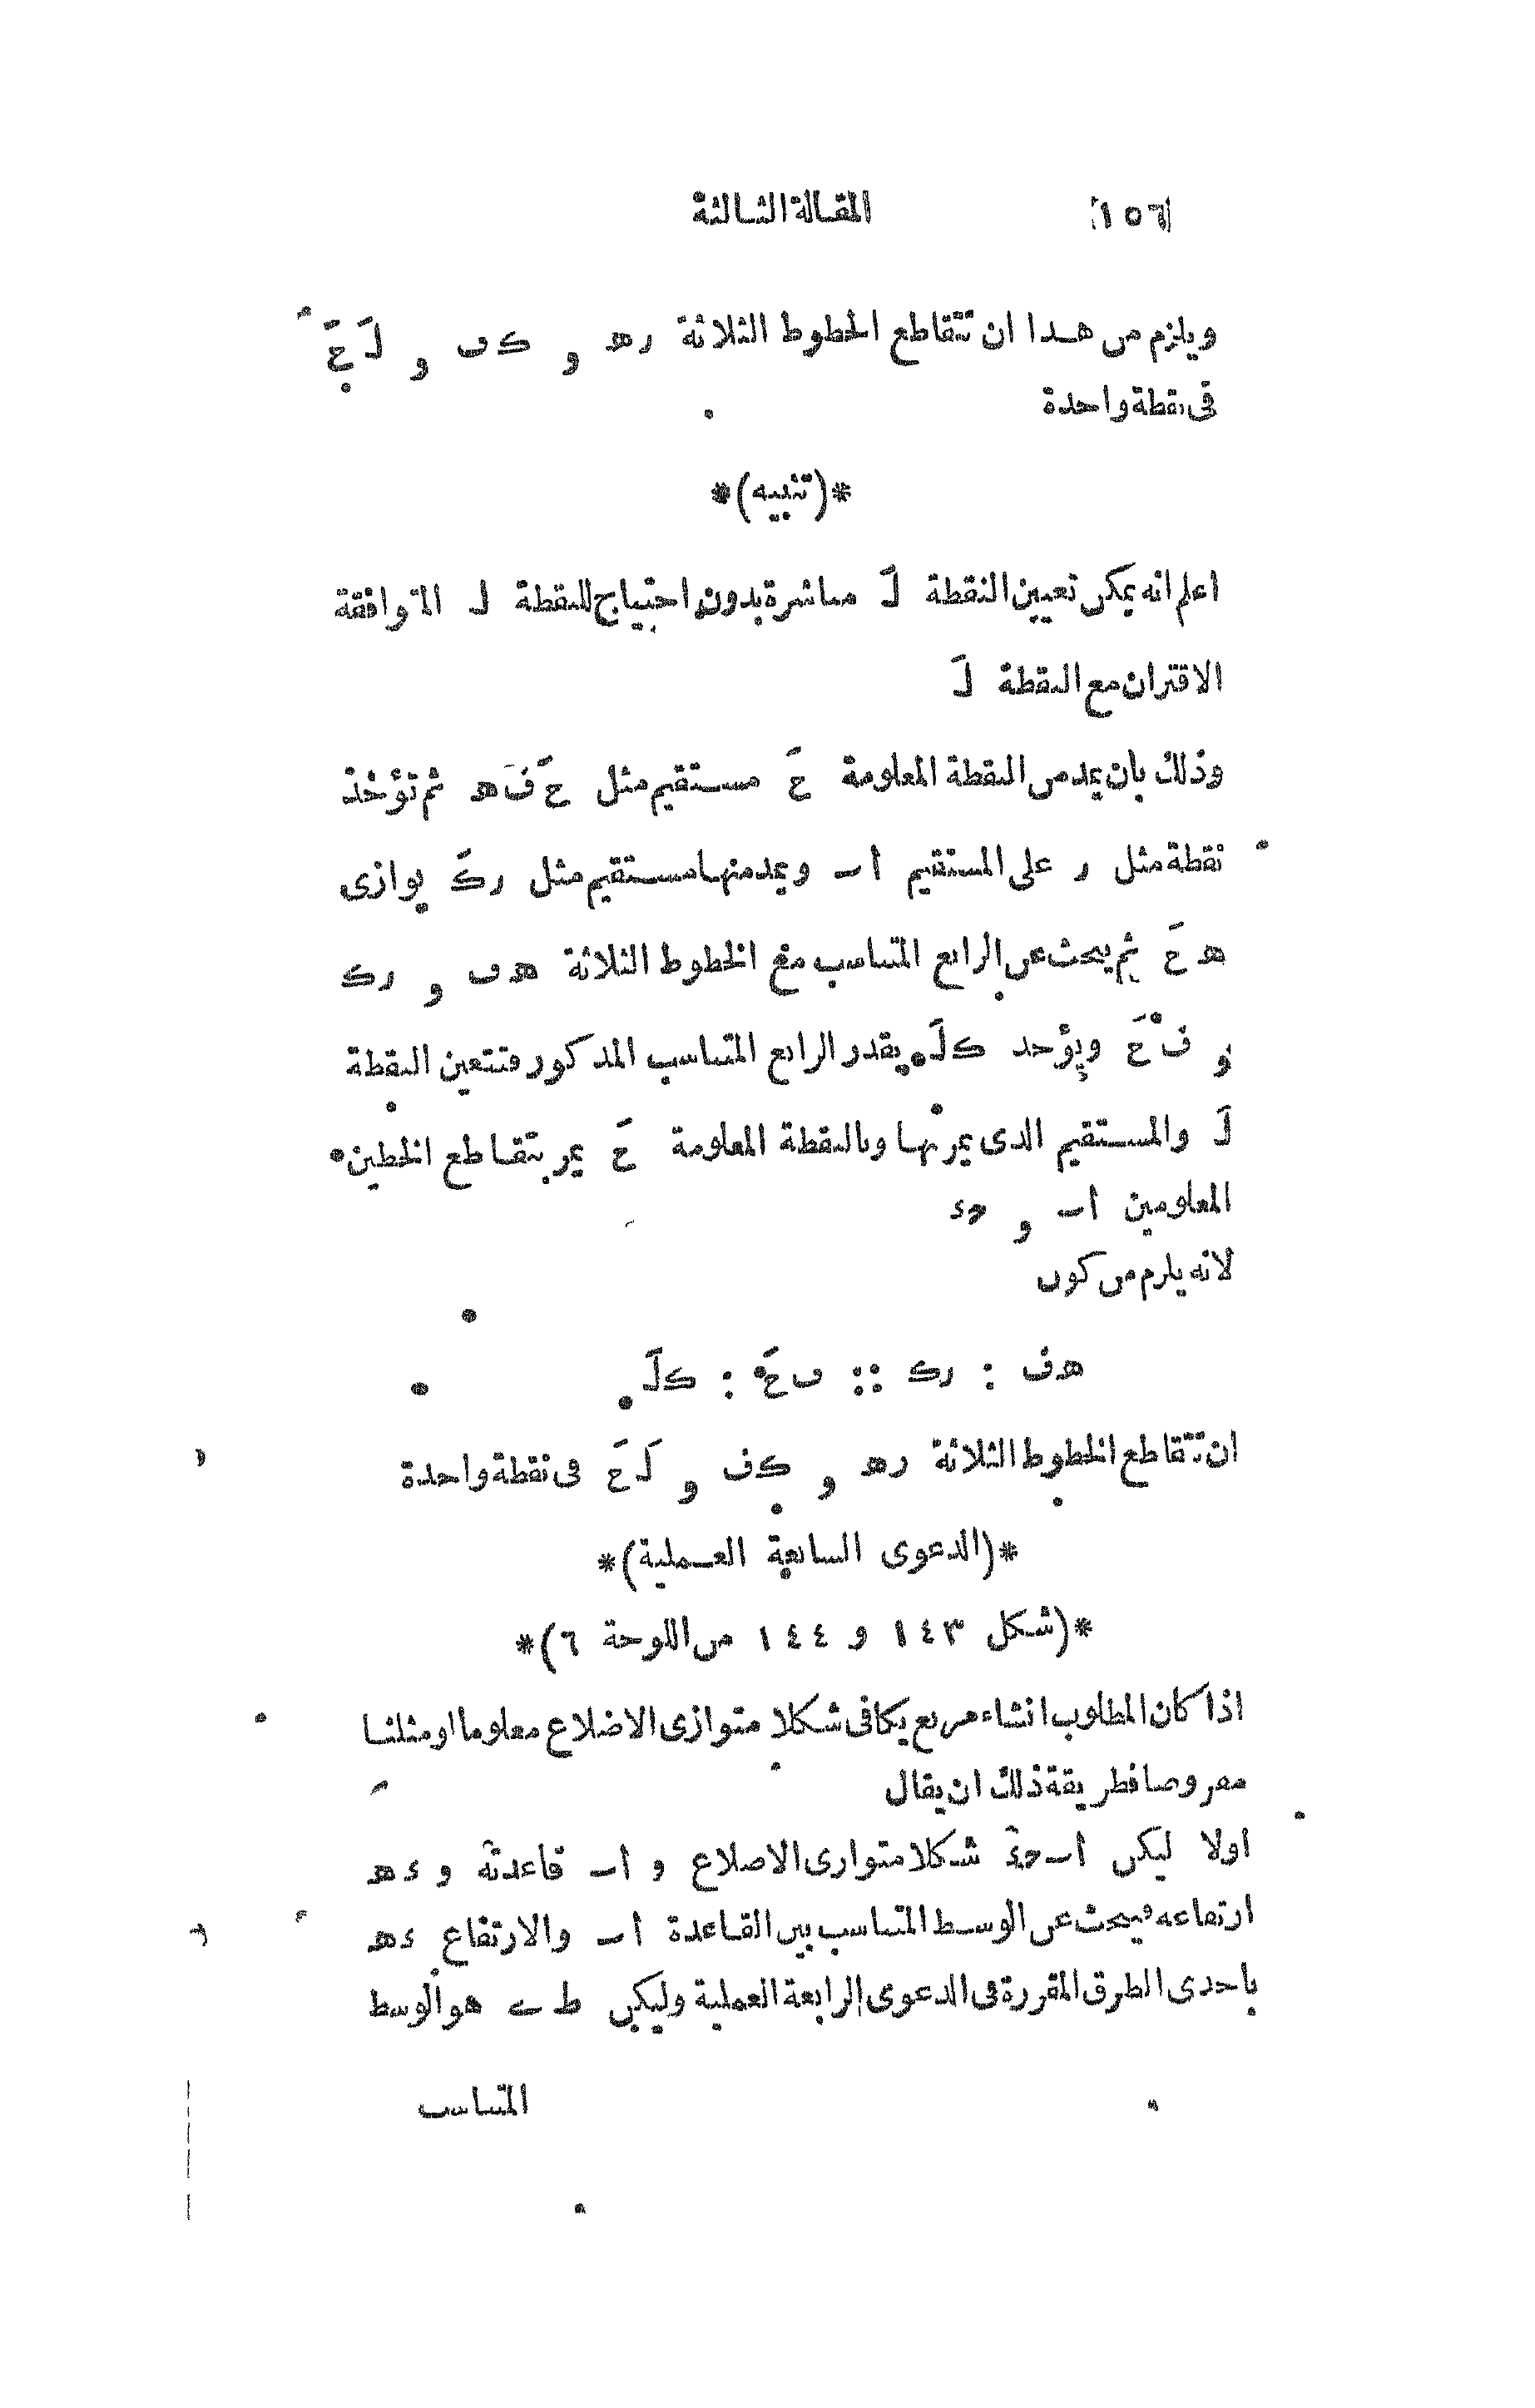 ١٥٦ المقالة الثالثة
ويلزم من هذا ان تتقاطع الخطوط الثلاثة ره و كف و لَ حَ
فى نقطة واحدة
*(تنبيه)*
اعلم انه يمكن تعيين النقطة لَ مباشرة بدون احتياج للنقطة ل المتوافقة
الاقتران مع النقطة لَ
وذلك بان يمد من النقطة المعلومة حَ مستقيم مثل حَ فَ ه ثم تؤخذ
نقطة مثل ر على المستقيم أب ويمد منها مستقيم مثل رك يوازى
ه حَ ثم يبحث عن الرابع المتناسب مع الخطوط الثلاثة هف و رك
و ف حَ ويؤخذ ك لَ بقدر الرابع المتناسب المذكور فتتعين النقطة
لَ والمستقيم الذى يمر بها وبالنقطة المعلومة حَ يمر بتقاطع الخطين
المعلومين أب و حء
لانه يلزم من كون
هف : رك :: ف حَ : ك لَ
ان تتقاطع الخطوط الثلاثة ره و كف و لَ حَ فى نقطة واحدة
*(الدعوى السابعة العملية)*
*(شكل ١٤٣ و ١٤٤ من اللوحة ٦)*
اذا كان المطلوب انشاء مربع يكافى شكلا متوازى الاضلاع معلوما او مثلثا
مفروضا فطريقة ذلك ان يقال
اولا ليكن أب حء شكلا متوازى الاضلاع و أب قاعدته و ءه
ارتفاعه فيبحث عن الوسط المتناسب بين القاعدة أب والارتفاع ءه
باحدى الطرق المقررة فى الدعوى الرابعة العملية وليكن ط ى هو الوسط
المتناسب